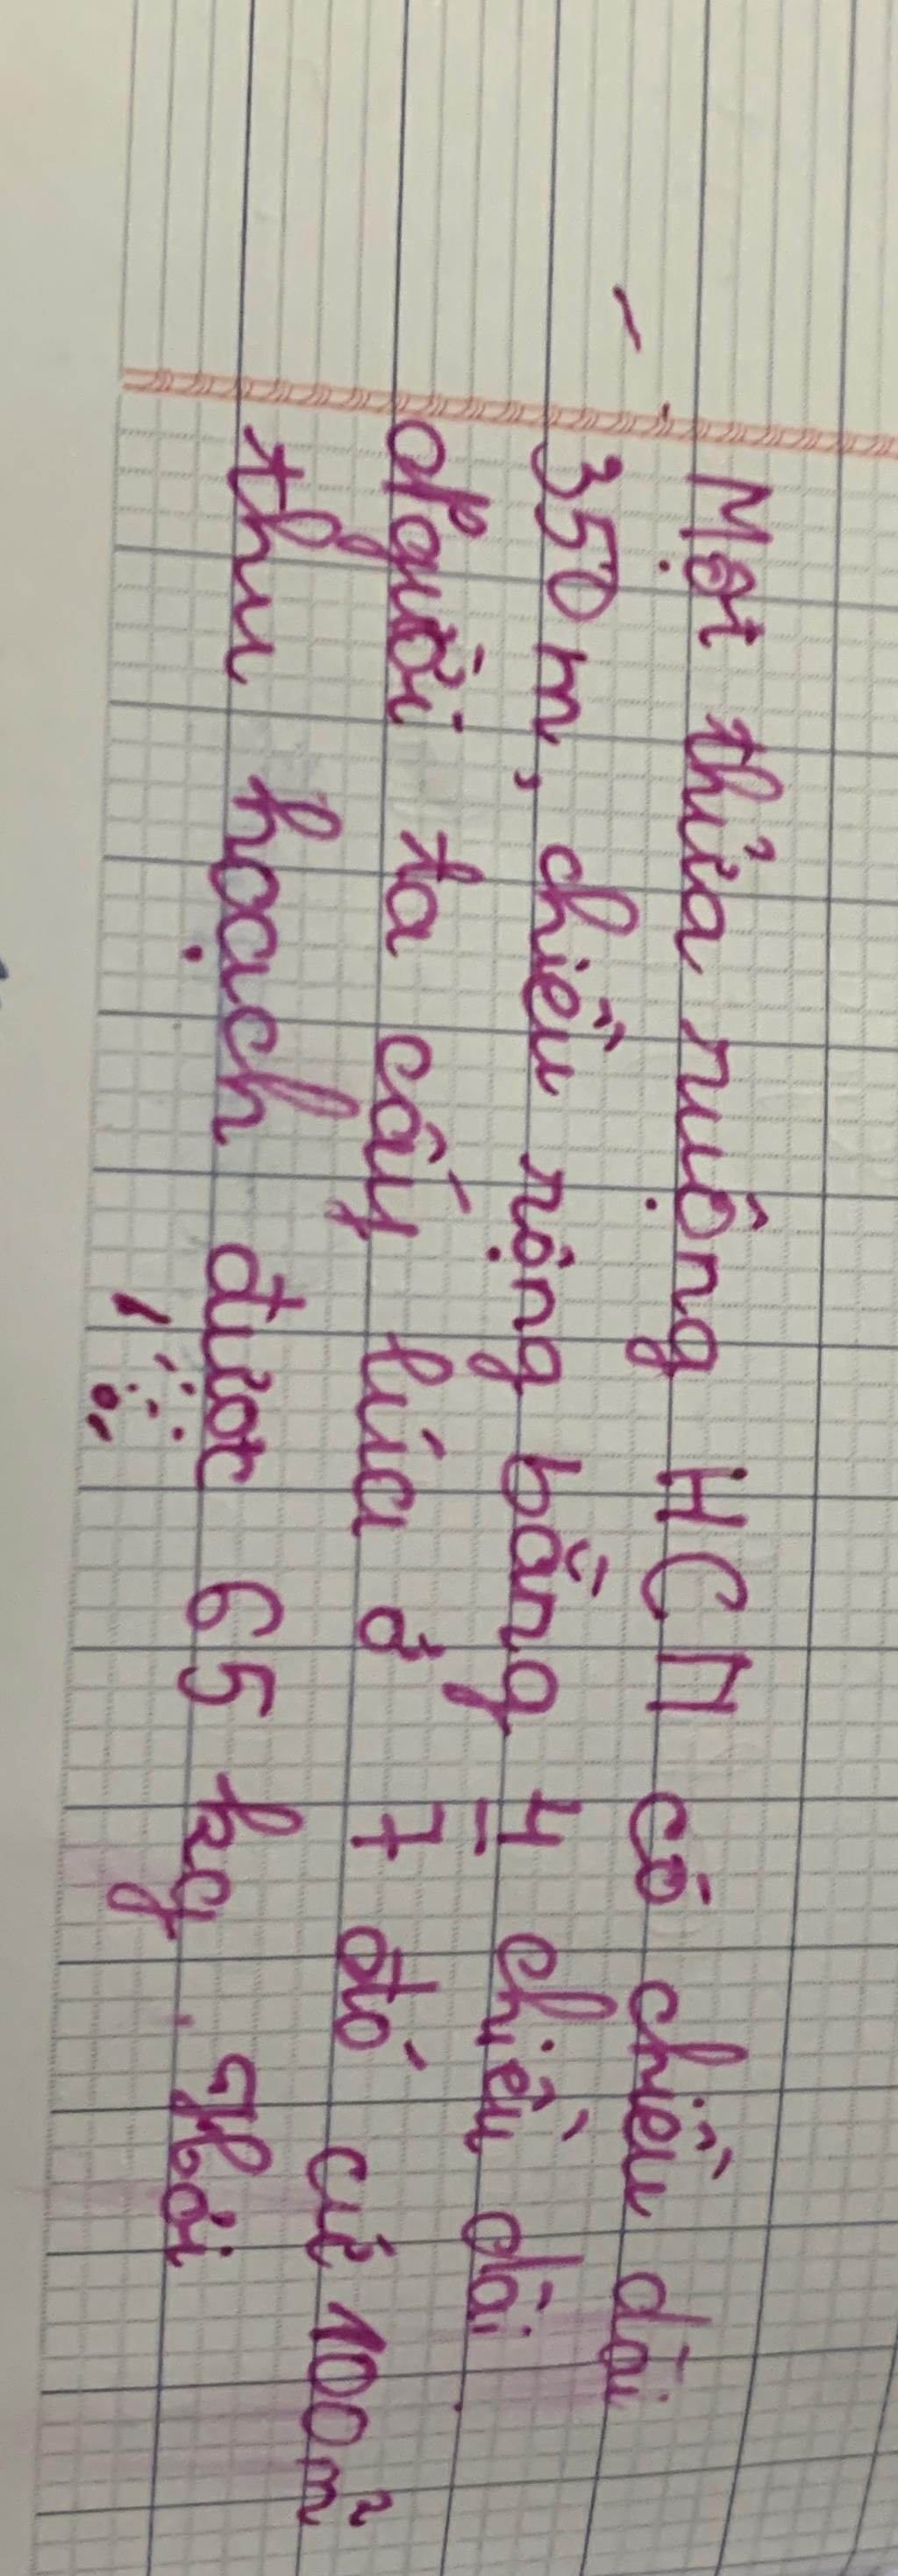 Một thửa ruộng HCN có chiều dài
350 m, chiều rộng bằng 4/7 chiều dài.
Người ta cấy lúa ở đó cứ 100 m²
thu hoạch được 65 kg. Hỏi